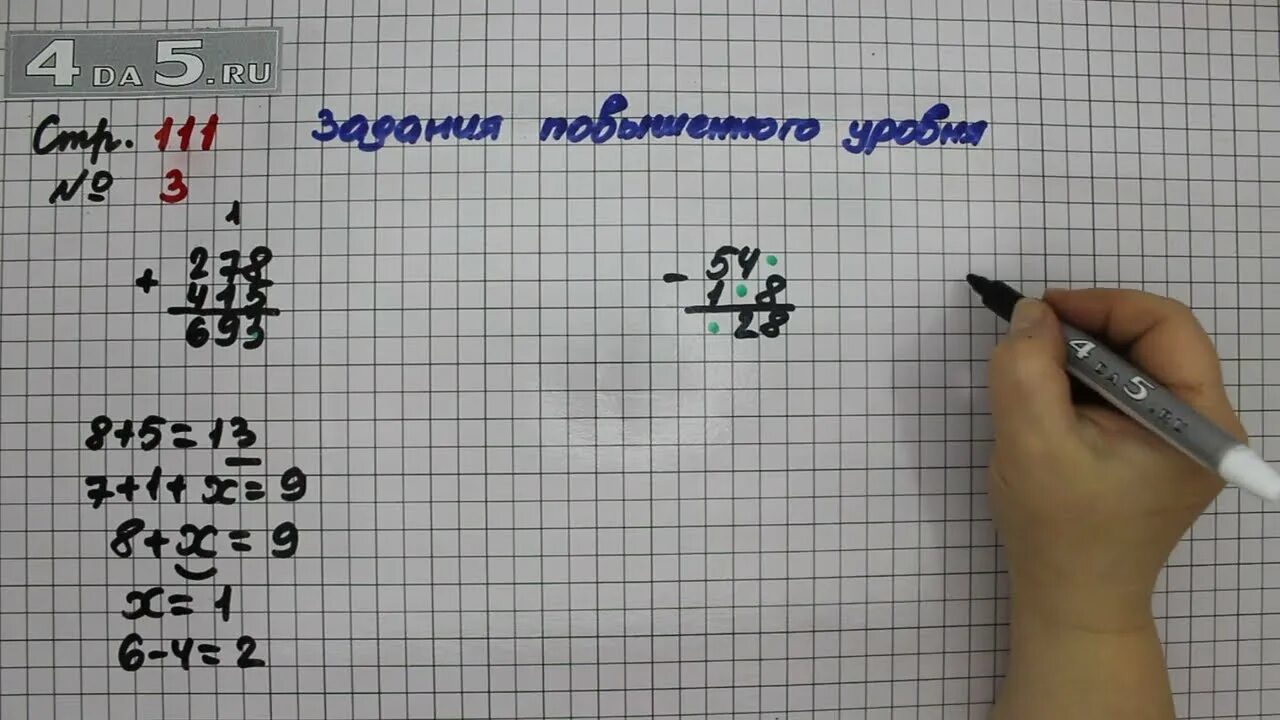 4DA5.RU
Стр. 111 Задания повышенного уровня
№ 3
1
+ 278
415
693
- 54•
1•8
•28
8+5=13
7+1+x=9
8+x=9
x=1
6-4=2
4DA5.RU